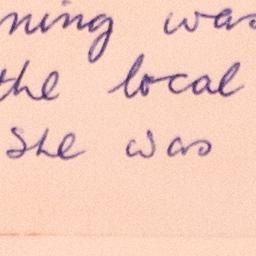 ning was
the local
She was